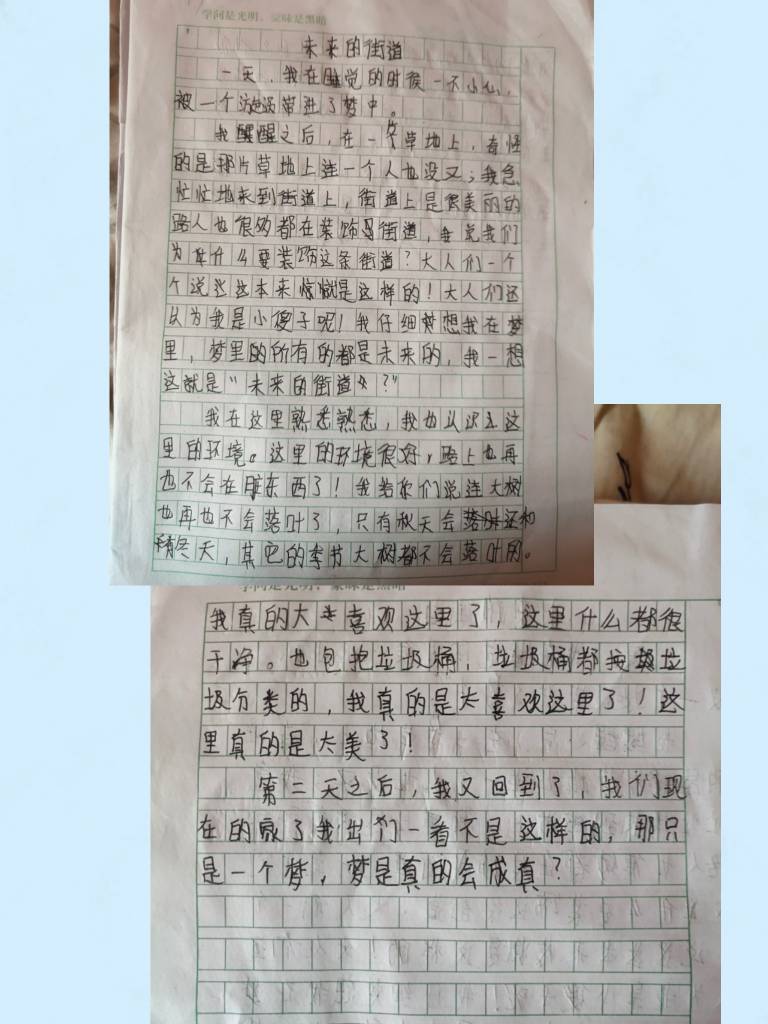 学问是光明，蒙昧是黑暗
未来的街道
一天，我在睡觉的时候一不小心，
被一个漩涡带进了梦中。
我醒醒之后，在一个草地上，奇怪
的是那片草地上连一个人也没又；我急
忙忙地来到街道上，街道上是很美丽的
路人也很多都在装饰街道，我说我们
为什么要装饰这条街道？大人们一个
个说这本来就是这样的！大人们还
认为我是小傻子呢！我仔细想想我在梦
里，梦里的所有的都是未来的，我一想
这就是“未来的街道”？”
我在这里熟悉熟悉，我也认识这
里的环境。这里的环境很好，路上也再
也不会在脏东西了！我告你们说连大树
也再也不会落叶了，只有秋天会和
冬天，其它的季节大树都不会落叶的。
学问是光明，蒙昧是黑暗
我真的太喜欢这里了，这里什么都很
干净。也包抱垃圾桶，垃圾桶都按垃
圾分类的，我真的是太喜欢这里了！这
里真的是太美了！
第二天之后，我又回到了，我们现
在的家了我出门一看不是这样的，那只
是一个梦，梦是真的会成真？